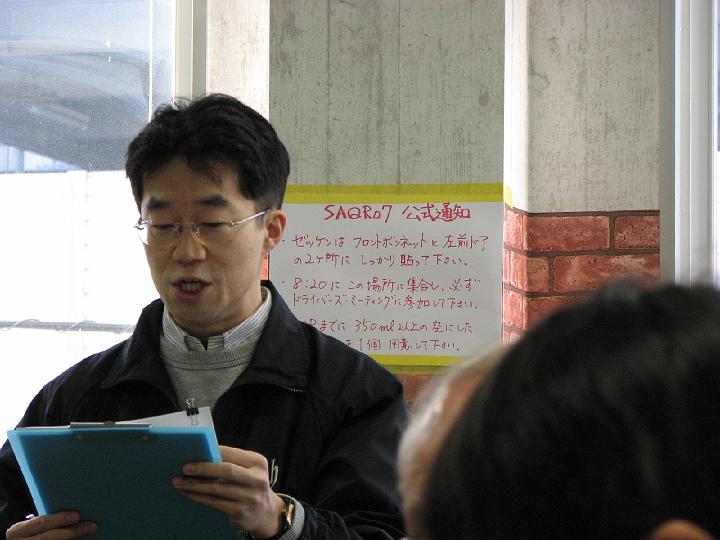 SAQR07 公式通知
・ゼッケンは フロントボンネットと 左前ドア
の2ヶ所に しっかり貼って下さい。
・8:20に この場所に集合し、必ず
ドライバーズ・ミーティングに参加して下さい。
までに 350ml以上の空にした
を1個 用意して下さい。